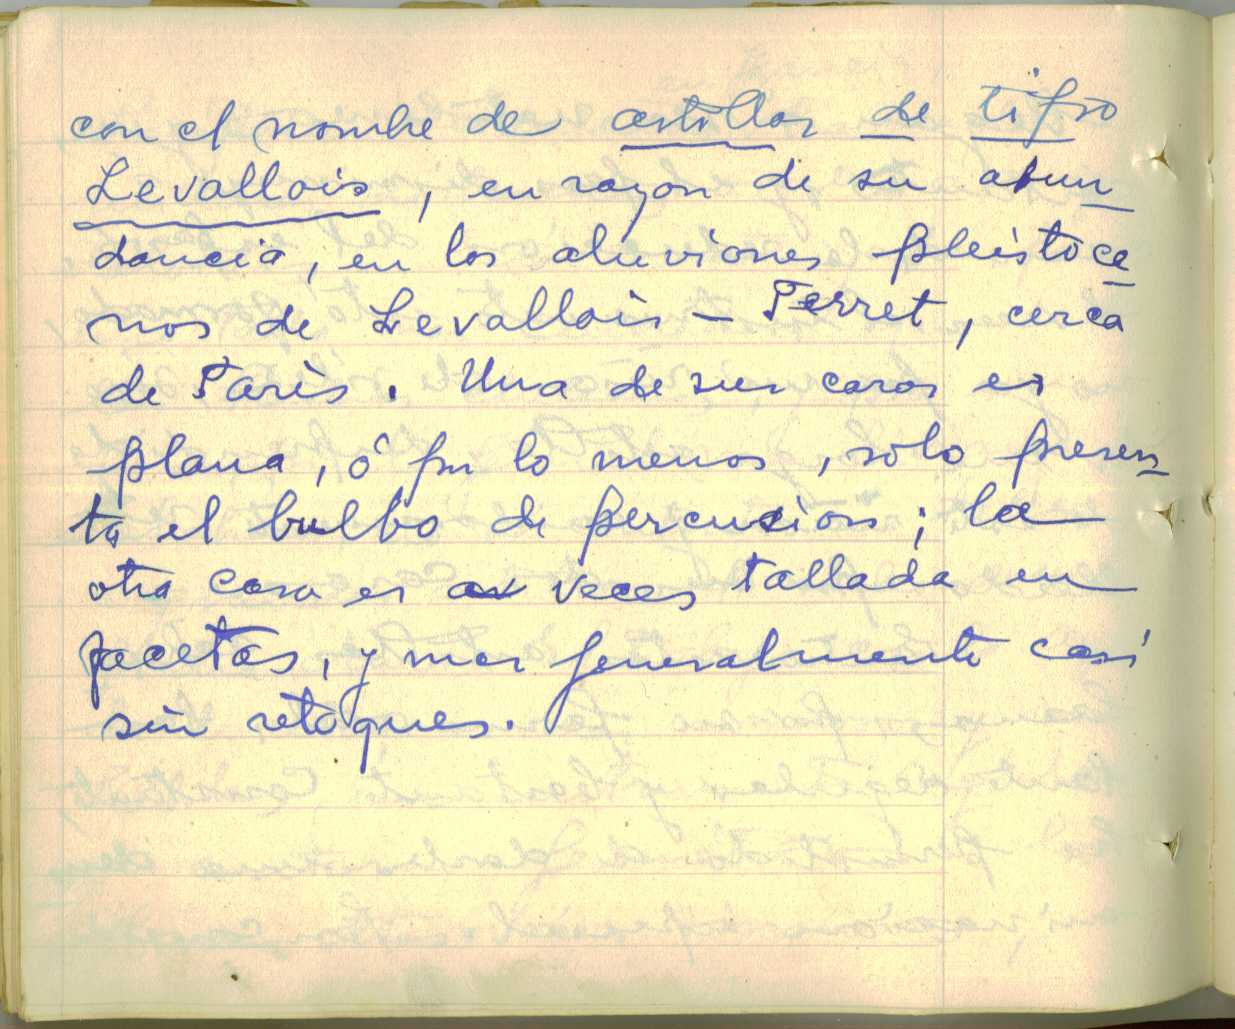 con el nombre de astillas de tipo
Levallois, en razon de su abun
dancia, en los aluviones pleistoce
nos de Levallois - Perret, cerca
de Paris. Una de sus caras es
plana, ó por lo menos, sólo presen
ta el bulbo de percusion; la
otra cara es a veces tallada en
facetas, y mas generalmente casi
sin retoques.